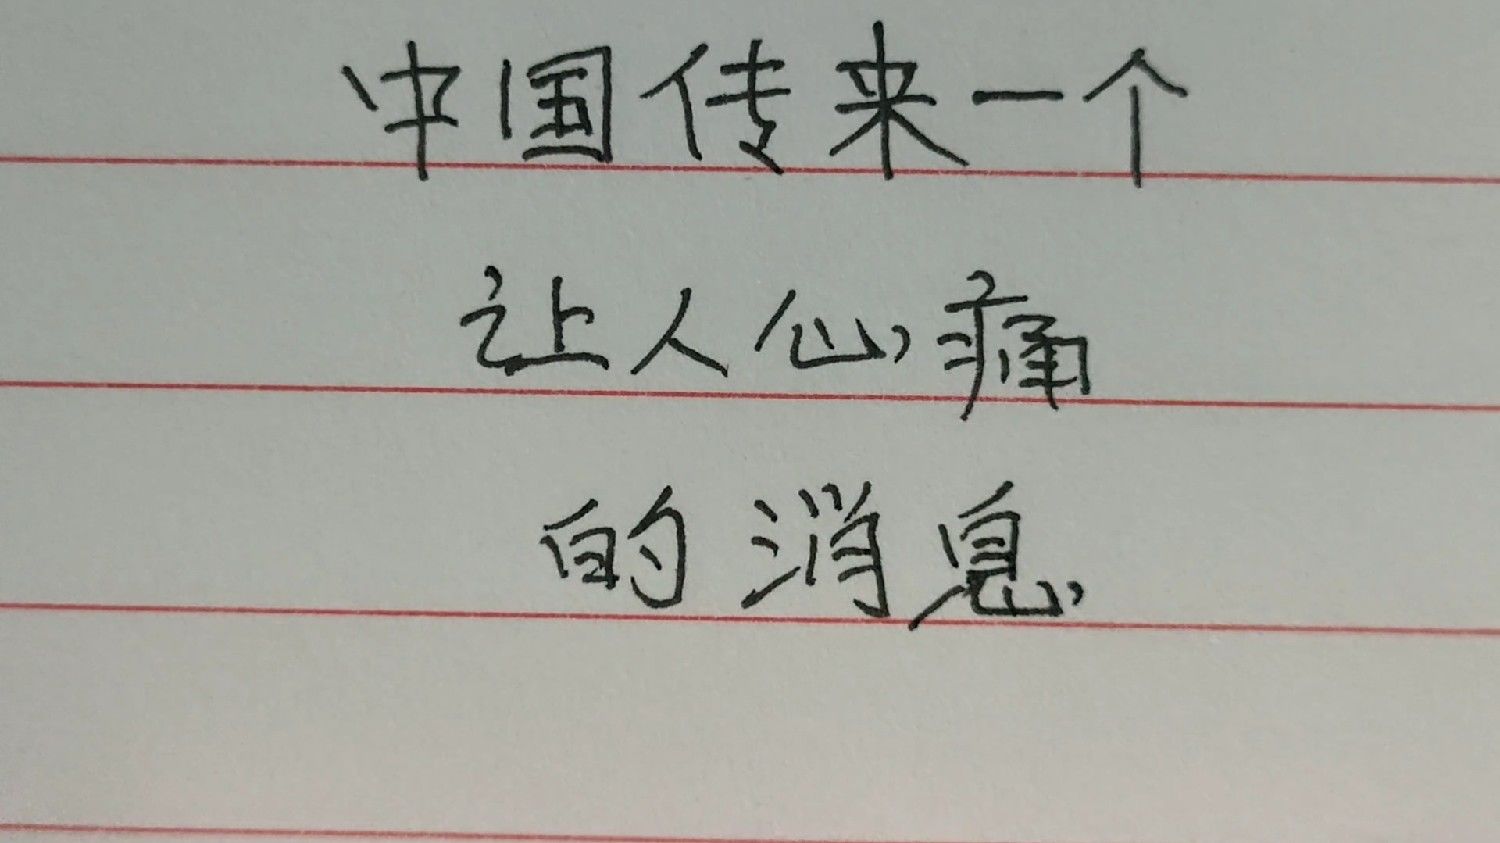 中国传来一个
让人心痛
的消息